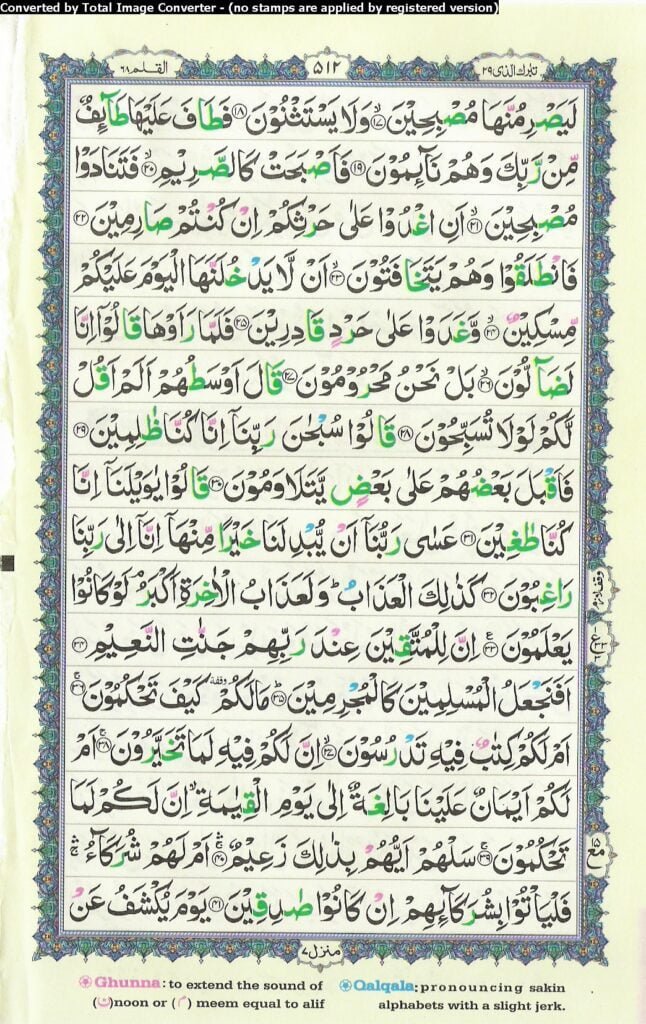 Converted by Total Image Converter - (no stamps are applied by registered version)
تبٰرك الذی ۲۹
۵۱۲
القلم ۶۸
لَيَصْرِمُنَّهَا مُصْبِحِيْنَ ۙ‏﴿۱۷﴾ وَلَا يَسْتَثْنُوْنَ ﴿۱۸﴾ فَطَافَ عَلَيْهَا طَآئِفٌ
مِّنْ رَّبِّكَ وَهُمْ نَآئِمُوْنَ ﴿۱۹﴾ فَاَصْبَحَتْ كَالصَّرِيْمِ ۙ﴿۲۰﴾ فَتَنَادَوْا
مُصْبِحِيْنَ ۙ﴿۲۱﴾ اَنِ اغْدُوْا عَلٰى حَرْثِكُمْ اِنْ كُنْتُمْ صَارِمِيْنَ ﴿۲۲﴾
فَانْطَلَقُوْا وَهُمْ يَتَخَافَتُوْنَ ۙ﴿۲۳﴾ اَنْ لَّا يَدْخُلَنَّهَا الْيَوْمَ عَلَيْكُمْ
مِّسْكِيْنٌ ۙ﴿۲۴﴾ وَّغَدَوْا عَلٰى حَرْدٍ قَادِرِيْنَ ﴿۲۵﴾ فَلَمَّا رَاَوْهَا قَالُوْۤا اِنَّا
لَضَآلُّوْنَ ۙ﴿۲۶﴾ بَلْ نَحْنُ مَحْرُوْمُوْنَ ﴿۲۷﴾ قَالَ اَوْسَطُهُمْ اَلَمْ اَقُلْ
لَّكُمْ لَوْلَا تُسَبِّحُوْنَ ﴿۲۸﴾ قَالُوْا سُبْحٰنَ رَبِّنَاۤ اِنَّا كُنَّا ظٰلِمِيْنَ ﴿۲۹﴾
فَاَقْبَلَ بَعْضُهُمْ عَلٰى بَعْضٍ يَّتَلَاوَمُوْنَ ﴿۳۰﴾ قَالُوْا يٰوَيْلَنَاۤ اِنَّا
كُنَّا طٰغِيْنَ ﴿۳۱﴾ عَسٰى رَبُّنَاۤ اَنْ يُّبْدِلَنَا خَيْرًا مِّنْهَاۤ اِنَّاۤ اِلٰى رَبِّنَا
رَاغِبُوْنَ ﴿۳۲﴾ كَذٰلِكَ الْعَذَابُ ؕ وَلَعَذَابُ الْاٰخِرَةِ اَكْبَرُ ۘ لَوْ كَانُوْا
يَعْلَمُوْنَ ﴿۳۳﴾ اِنَّ لِلْمُتَّقِيْنَ عِنْدَ رَبِّهِمْ جَنّٰتِ النَّعِيْمِ ﴿۳۴﴾
اَفَنَجْعَلُ الْمُسْلِمِيْنَ كَالْمُجْرِمِيْنَ ﴿۳۵﴾ مَا لَكُمْ وقفة كَيْفَ تَحْكُمُوْنَ ۚ﴿۳۶﴾
اَمْ لَكُمْ كِتٰبٌ فِيْهِ تَدْرُسُوْنَ ۙ﴿۳۷﴾ اِنَّ لَكُمْ فِيْهِ لَمَا تَخَيَّرُوْنَ ۚ﴿۳۸﴾ اَمْ
لَكُمْ اَيْمَانٌ عَلَيْنَا بَالِغَةٌ اِلٰى يَوْمِ الْقِيٰمَةِ ۙ اِنَّ لَكُمْ لَمَا
تَحْكُمُوْنَ ۚ﴿۳۹﴾ سَلْهُمْ اَيُّهُمْ بِذٰلِكَ زَعِيْمٌ ۚۛ﴿۴۰﴾ اَمْ لَهُمْ شُرَكَآءُ ۚۛ
فَلْيَاْتُوْا بِشُرَكَآئِهِمْ اِنْ كَانُوْا صٰدِقِيْنَ ﴿۴۱﴾ يَوْمَ يُكْشَفُ عَنْ
وقف لازم
مع ۱۵
منزل ۷
Ghunna: to extend the sound of (ن) noon or (م) meem equal to alif
Qalqala: pronouncing sakin alphabets with a slight jerk.